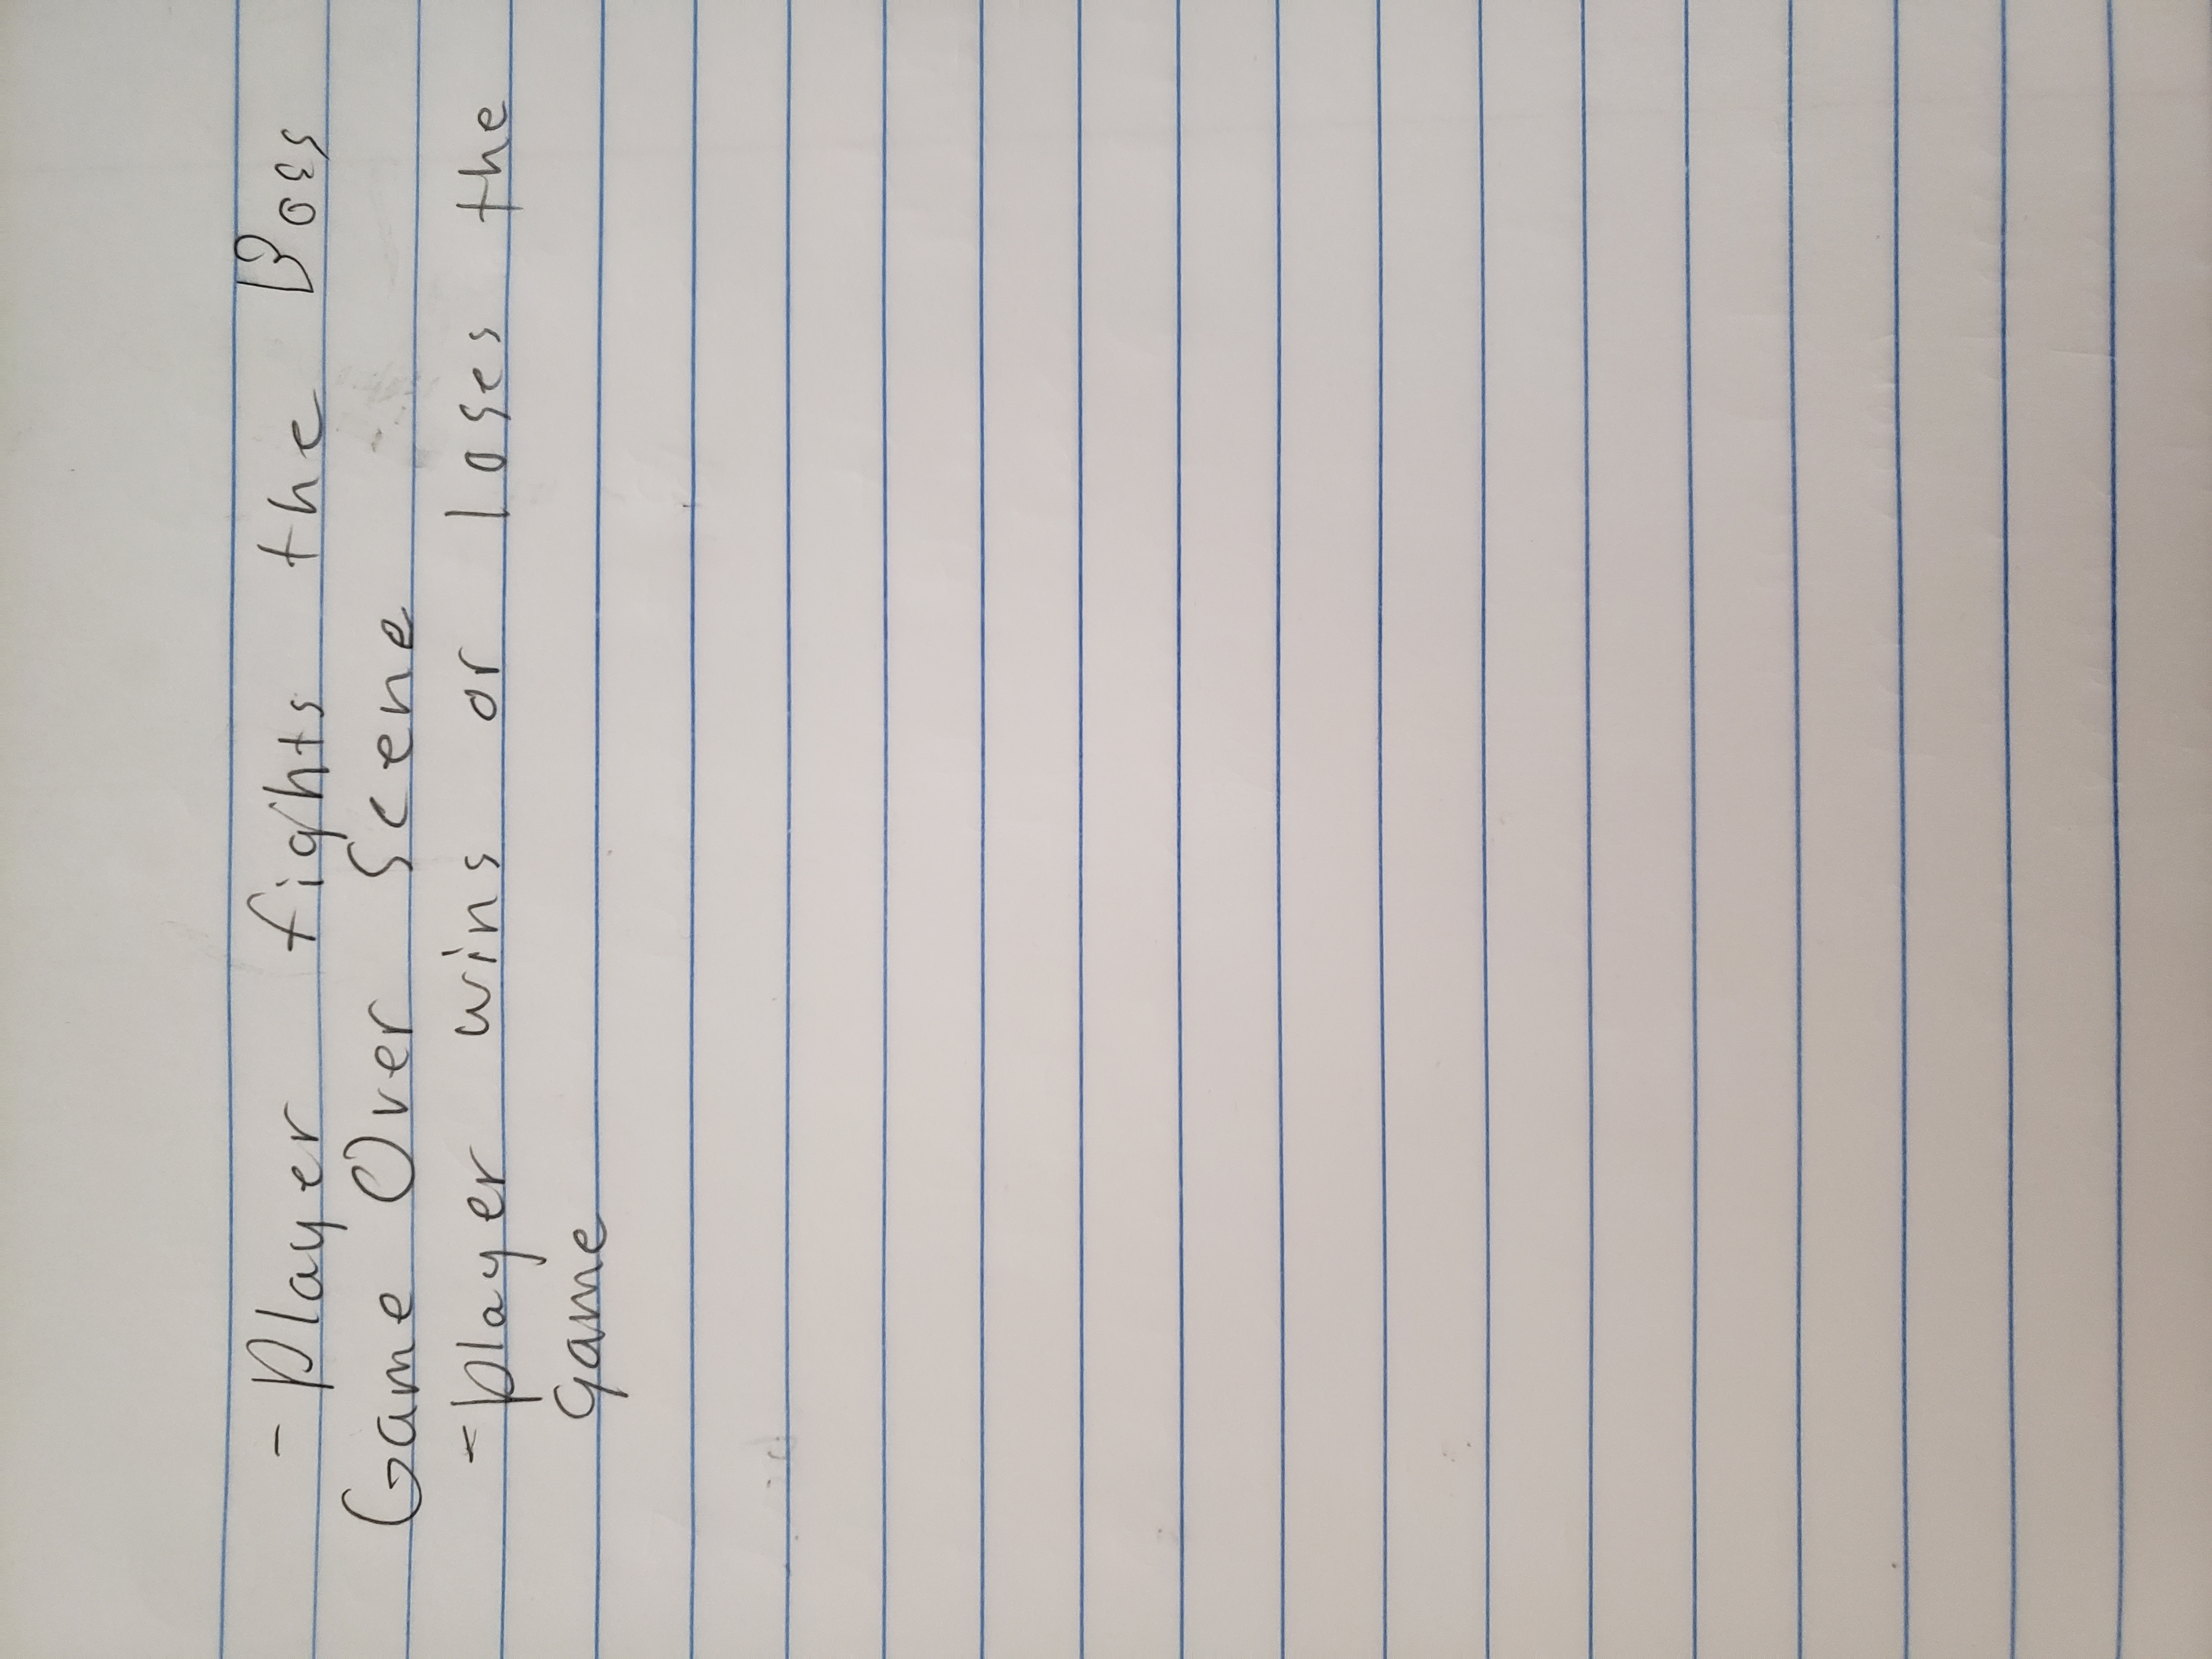 - Player fights the Boss
Game Over Scene
- player wins or loses the
game